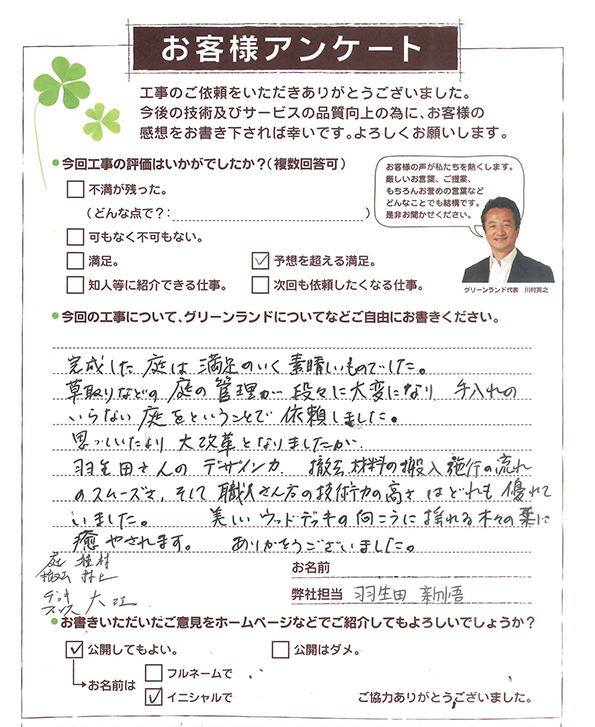 お客様アンケート
工事のご依頼をいただきありがとうございました。
今後の技術及びサービスの品質向上の為に、お客様の
感想をお書き下されば幸いです。よろしくお願いします。
●今回工事の評価はいかがでしたか？（複数回答可）
不満が残った。
（どんな点で？：　）
可もなく不可もない。
満足。
予想を超える満足。
知人等に紹介できる仕事。
次回も依頼したくなる仕事。
お客様の声が私たちを熱くします。
厳しいお言葉、ご提案、
もちろんお誉めの言葉など
どんなことでも結構です。
是非お聞かせください。
グリーンランド代表　川村英之
●今回の工事について、グリーンランドについてなどご自由にお書きください。
完成した庭は満足のいく素晴しいものでした。
草取りなどの庭の管理が段々に大変になり手入れの
いらない庭をということで依頼しました。
思っていたより大改革となりましたが、
羽生田さんのデザイン力、撤去、材料の搬入施行の流れ
のスムーズさ、そして職人さん方の技術力の高さはどれも優れて
いました。　美しいウッドデッキの向こうに揺れる木々の葉に
癒やされます。　ありがとうございました。
庭 植村
村上
デッキ
大江
お名前
弊社担当 羽生田
●お書きいただいたご意見をホームページなどでご紹介してもよろしいでしょうか？
公開してもよい。
公開はダメ。
お名前は
フルネームで
イニシャルで
ご協力ありがとうございました。